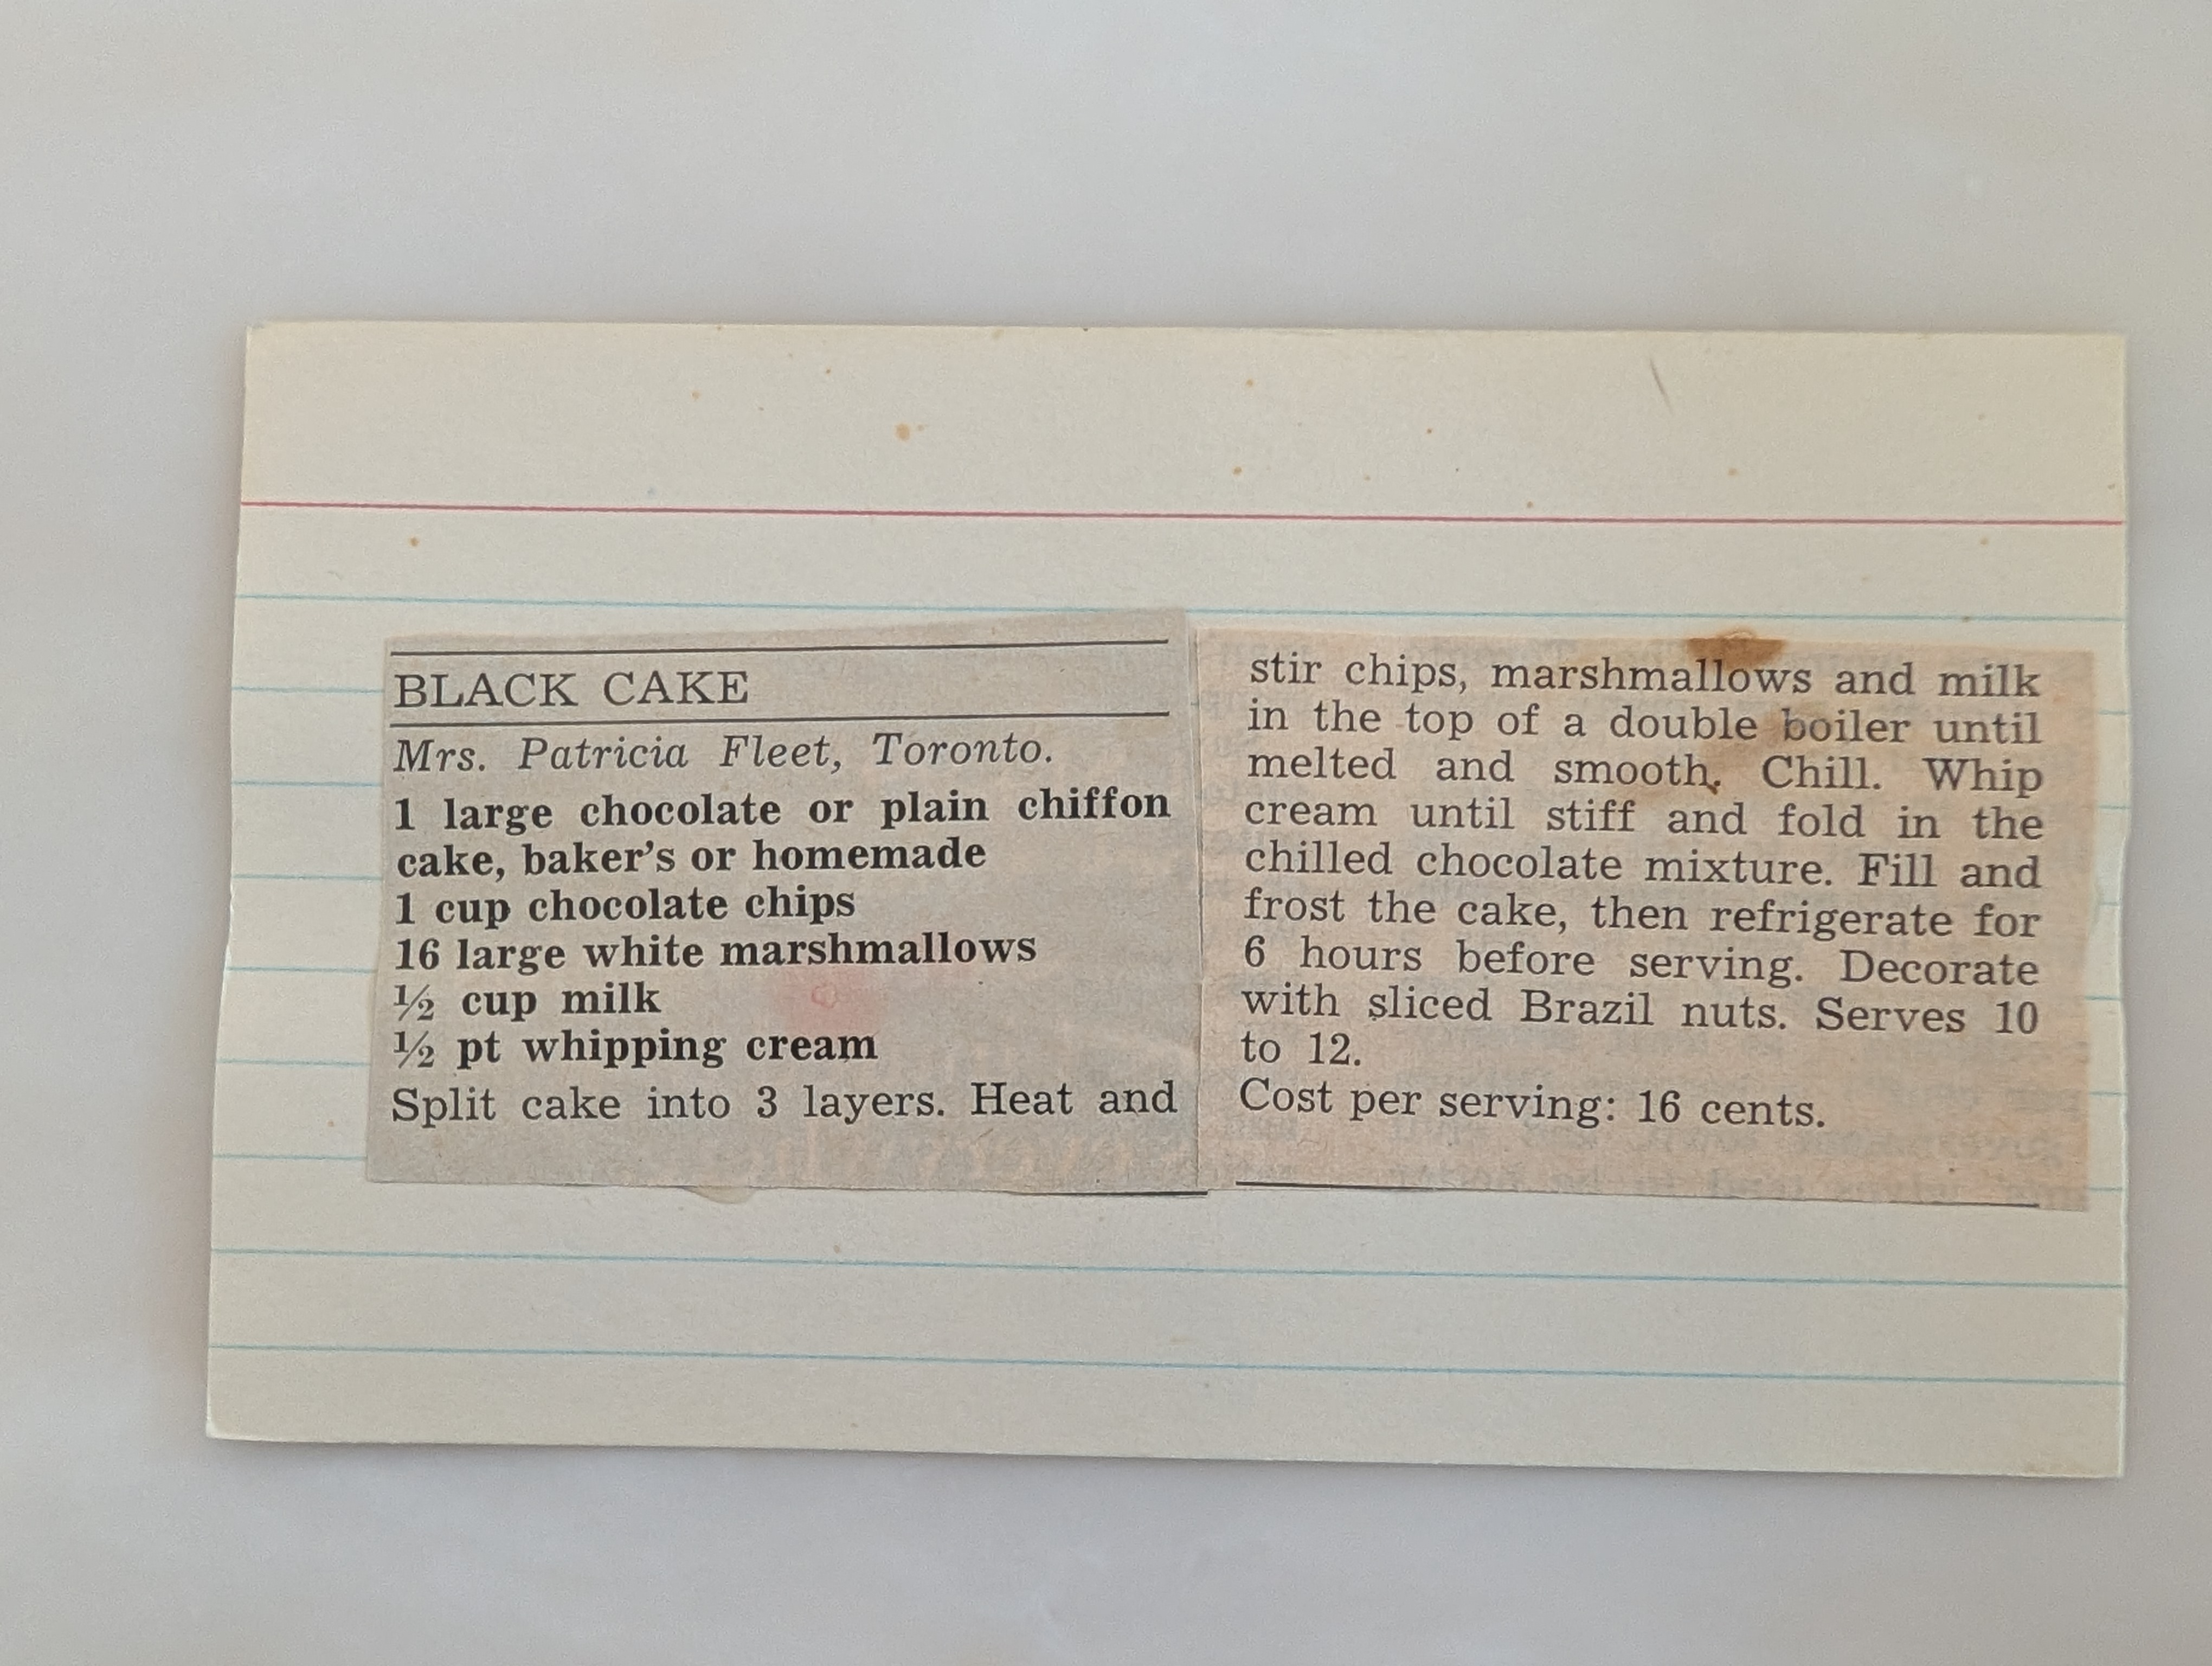 BLACK CAKE
Mrs. Patricia Fleet, Toronto.
1 large chocolate or plain chiffon
cake, baker's or homemade
1 cup chocolate chips
16 large white marshmallows
½ cup milk
½ pt whipping cream
Split cake into 3 layers. Heat and
stir chips, marshmallows and milk
in the top of a double boiler until
melted and smooth. Chill. Whip
cream until stiff and fold in the
chilled chocolate mixture. Fill and
frost the cake, then refrigerate for
6 hours before serving. Decorate
with sliced Brazil nuts. Serves 10
to 12.
Cost per serving: 16 cents.